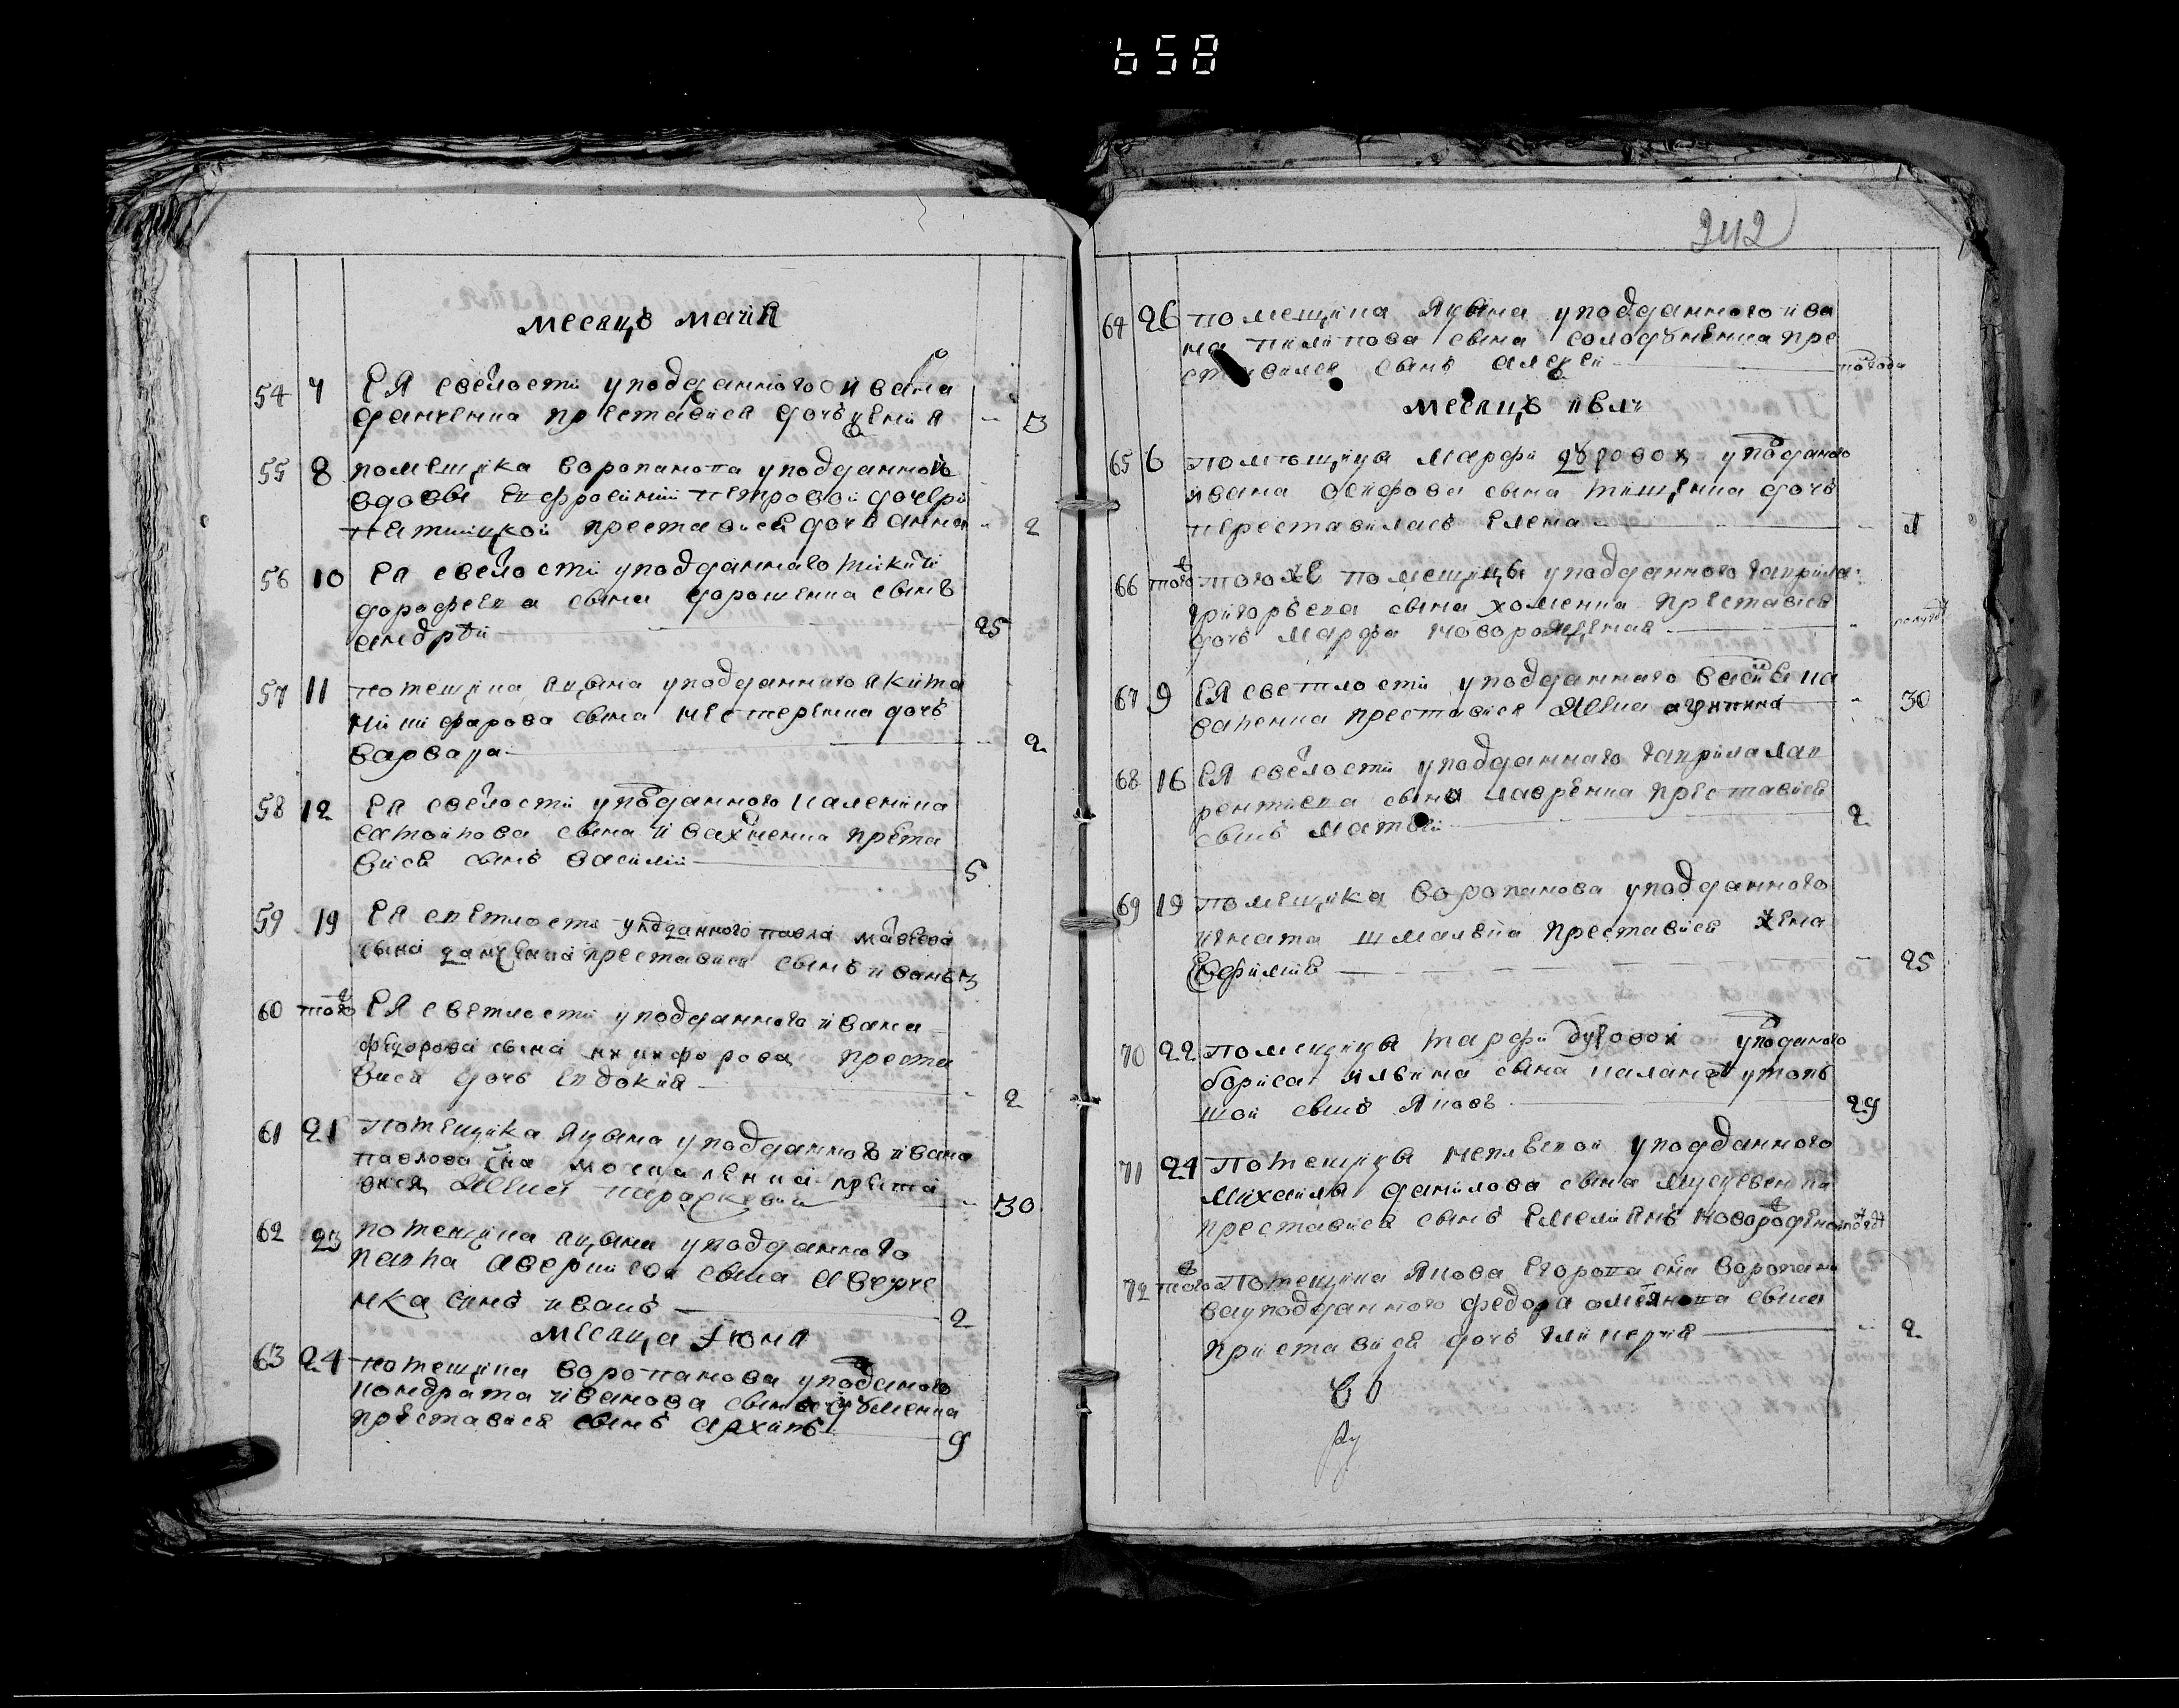 658
242
месяцъ маия
54 7 Ея свѣлости уподданного ивана
данченка преставися дочъ ксения - 3
55 8 помещика воропанова уподданной
вдовы Евфросинии петровой дочери
преставися дочъ анна - 2
56 10 Ея свѣлости уподданного никити
дорофеева сына дорошенка сынъ
андрѣи 25
57 11 помещика яцына уподданного якима
никифорова сына нестеренка дочъ
варвара - 2
58 12 Ея свѣлости уподданного
сына ивахненка преста
вися сынъ василии 5
59 19 Ея светлости уподданного павла
сына данченка преставися сынъ иванъ 3
60 того Ея светлости уподданного ивана
федорова сына никифорова преста
вися дочъ Евдокия - 2
61 21 помещика яцына уподданного ивана
павлова сна москаленка преста
вися жена - 30
62 23 помещика яцына уподданного
павла сына аверче
нка синъ иванъ 2
месяца Iюня
63 24 помещика воропанова уподданого
кондрата иванова сына
преставися сынъ архипъ 9
64 26 помещика яцына уподданного ива
на пилипова сына солодовненка пре
ставился сынъ алексеи полгода
месяцъ июль
65 6 помѣщица марфи дуровои уподаного
ивана осифова сына тищенка дочъ
переставиласъ Елена - 1
66 того тогоже помещицы уподданного гаврила
григорьева сына хоменка преставися
дочъ марфа новорожденная - полуго
67 9 Ея светлости уподданного
преставися жена - 30
68 16 Ея свѣлости уподданного гаврила лав
рентиева сына лавренка преставися
сынъ матвѣи 2
69 19 помещика воропанова уподданного
игната шмалѣя преставися жена
Евфимия - 25
70 22 помещицы марфи дуровои уподаного
бориса илъина сына утопъ
шои сынъ яковъ 29
71 24 помещицы уподданного
михаила данилова сына
преставися сынъ Емелиянъ новорожденои
72 того помещика якова Егорова сна воропано
ва уподданного федора сына
преставися дочъ гликерия - 2